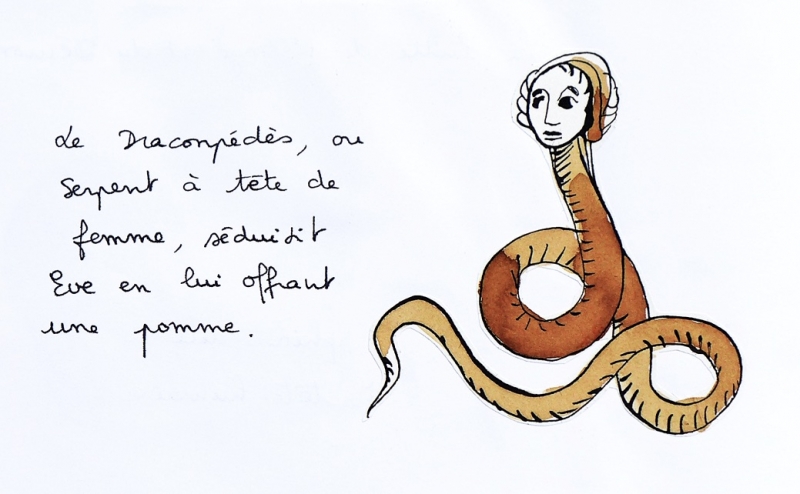 Le Draconpédès, ou
Serpent à tête de
femme, séduisit
Eve en lui offrant
une pomme.